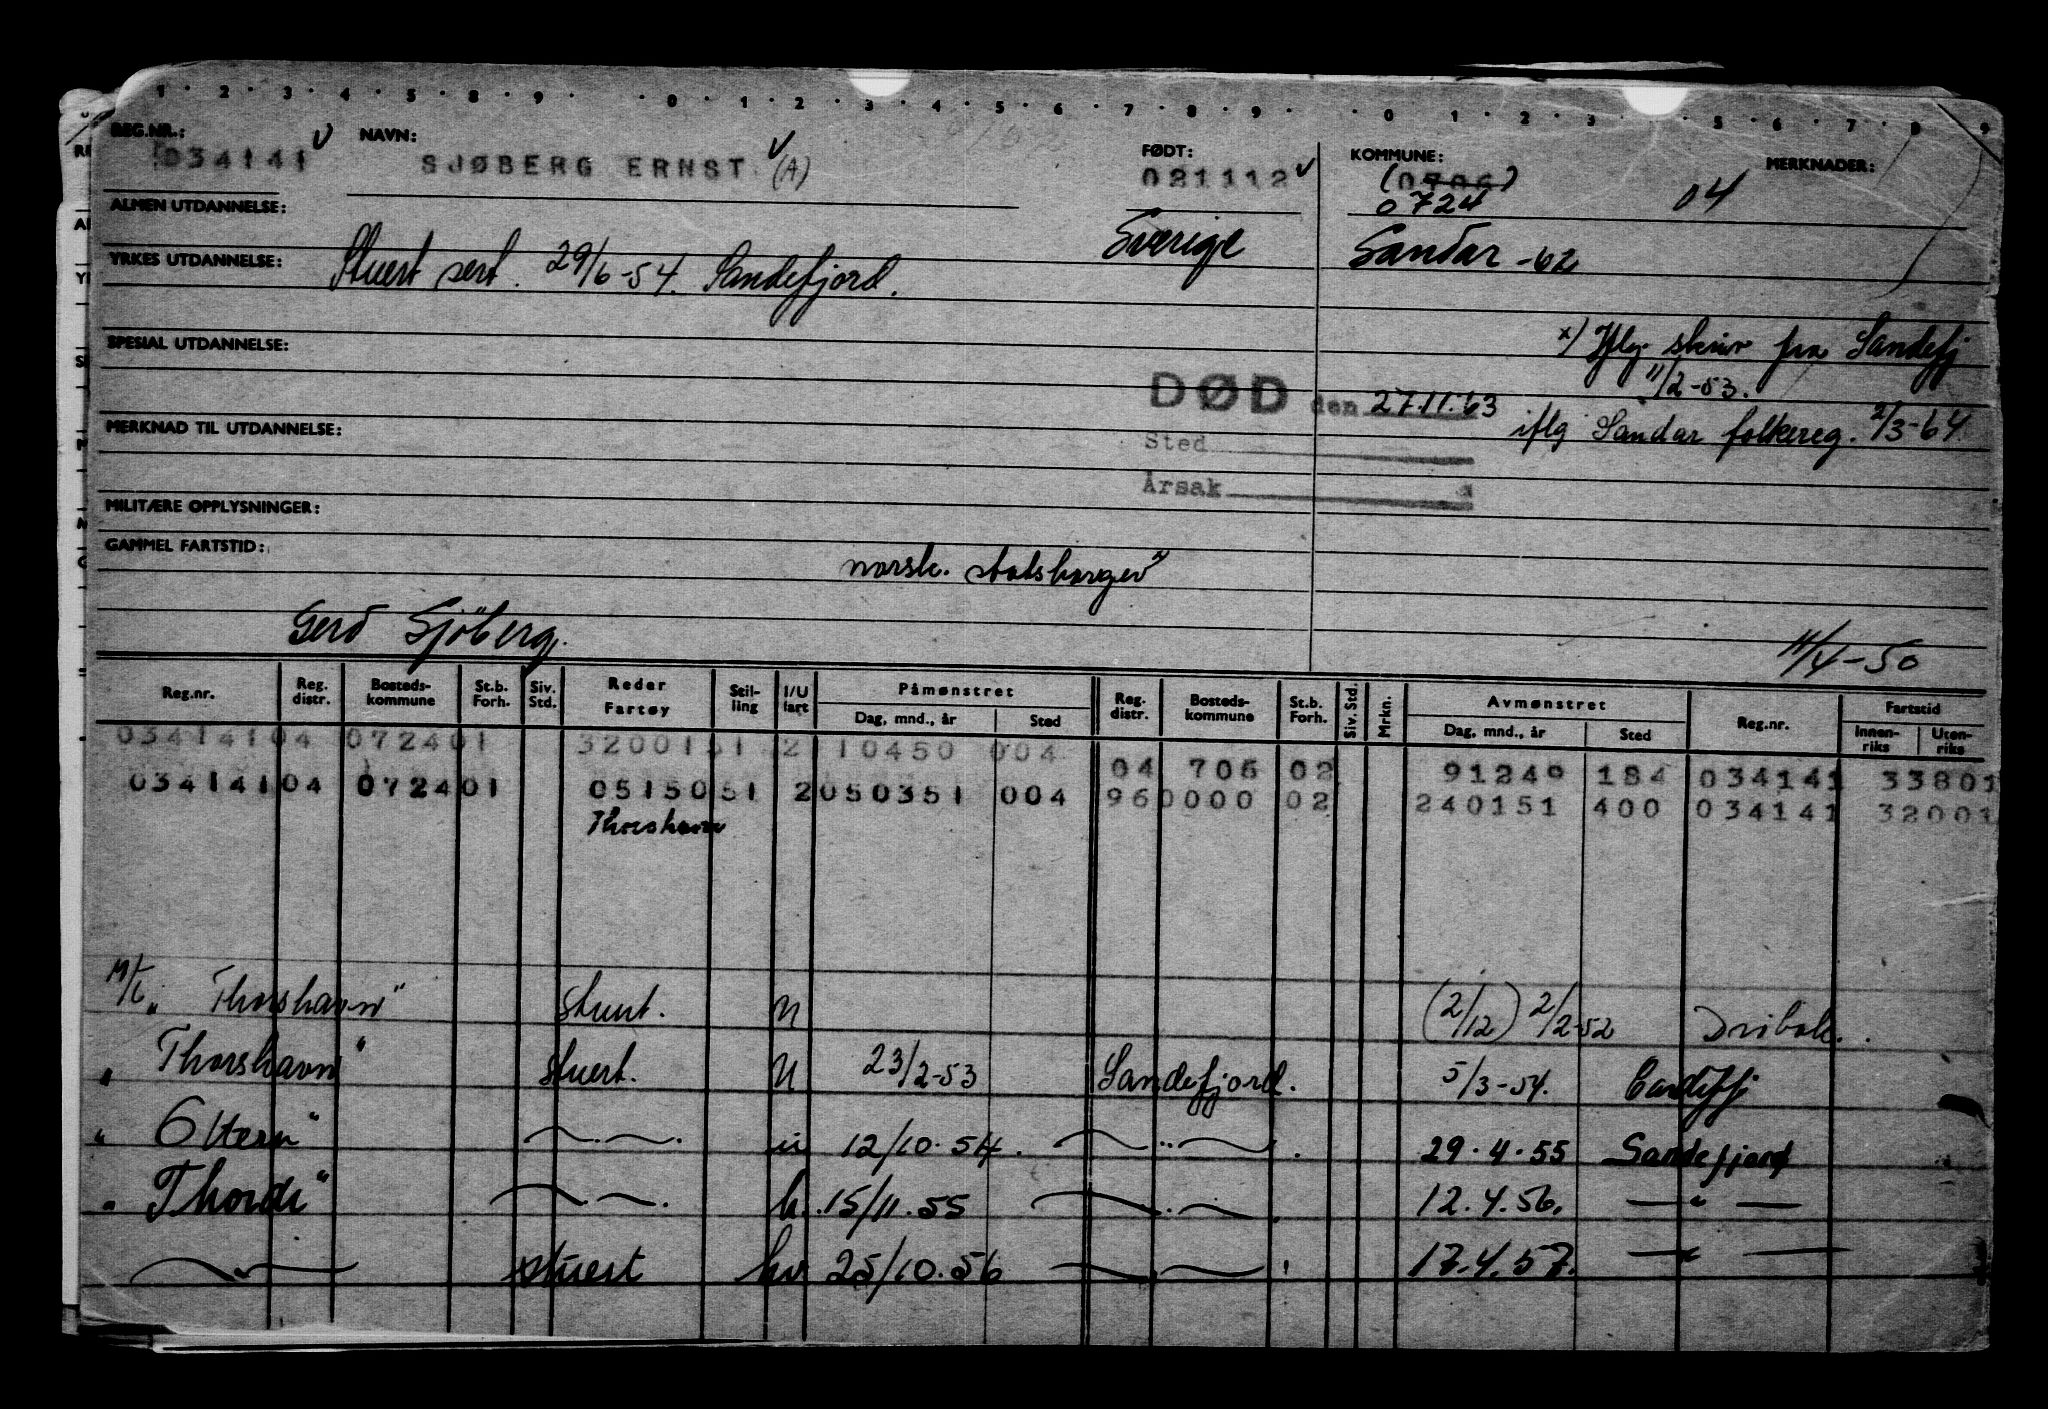 1 · 2 · 3 · 4 · 5 · 8 · 9 · · 0 · 1 · 2 · 3 · 4 · 5 · 6 · 7 · 8 · 9 · · 0 · 1 · 2 · 3 · 5 · 6 · 7 · 8 · 9
REG.NR.: NAVN: FØDT: KOMMUNE: MERKNADER:
034141 SJØBERG ERNST (A) 021112 (0706) 04
0724
ALMEN UTDANNELSE: Sverige Sandar -62
YRKES UTDANNELSE: Stuert sert. 29/6-54. Sandefjord.
x) Iflg. skriv fra Sandefj
11/2-53.
SPESIAL UTDANNELSE:
DØD den 27.11.63 iflg Sandar folkereg. 2/3-64
MERKNAD TIL UTDANNELSE:
Sted
Årsak
MILITÆRE OPPLYSNINGER:
GAMMEL FARTSTID:
norsk. statsborger x
Gerd Sjöberg.
11/4-50
Reg.nr. Reg. distr. Bosteds-kommune St.b. Forh. Siv. Std. Reder Fartøy Stil-ling I/U fart Påmønstret Dag, mnd., år Sted Reg. distr. Bosteds-kommune St.b. Forh. Siv. Std. Mrkn. Avmønstret Dag, mnd., år Sted Reg.nr. Fartstid Innen-riks Uten-riks
034141 04 0724 01 32001 51 2 110450 004 04 706 02 91249 184 034141 33801
034141 04 0724 01 05150 51 2 050351 004 96 0000 02 240151 400 034141 32001
Thorshavn
M/T " Thorshavn" Stuert. U (2/12) 2/2-52
" Thorshavn" Stuert. U 23/2-53 Sandefjord. 5/3-54. Cardiff
" Oltern" u 12/10.54. 29.4.55 Sandefjord
" Thordr" h. 15/11.55 12.4.56. — " —
stuert hv 25/10.56 17.4.57. — " —